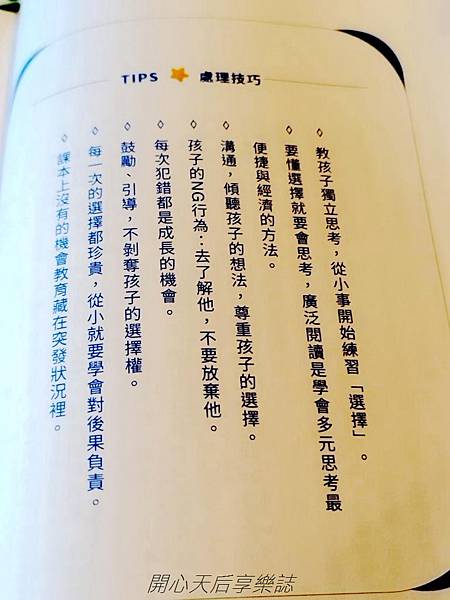 TIPS 處理技巧
◇ 教孩子獨立思考，從小事開始練習「選擇」。
◇ 要懂選擇就要會思考，廣泛閱讀是學會多元思考最
便捷與經濟的方法。
◇ 溝通，傾聽孩子的想法，尊重孩子的選擇。
◇ 孩子的NG行為：去了解他，不要放棄他。
◇ 每次犯錯都是成長的機會。
◇ 鼓勵、引導，不剝奪孩子的選擇權。
◇ 每一次的選擇都珍貴，從小就要學會對後果負責。
◇ 課本上沒有的機會教育藏在突發狀況裡。
開心天后享樂誌